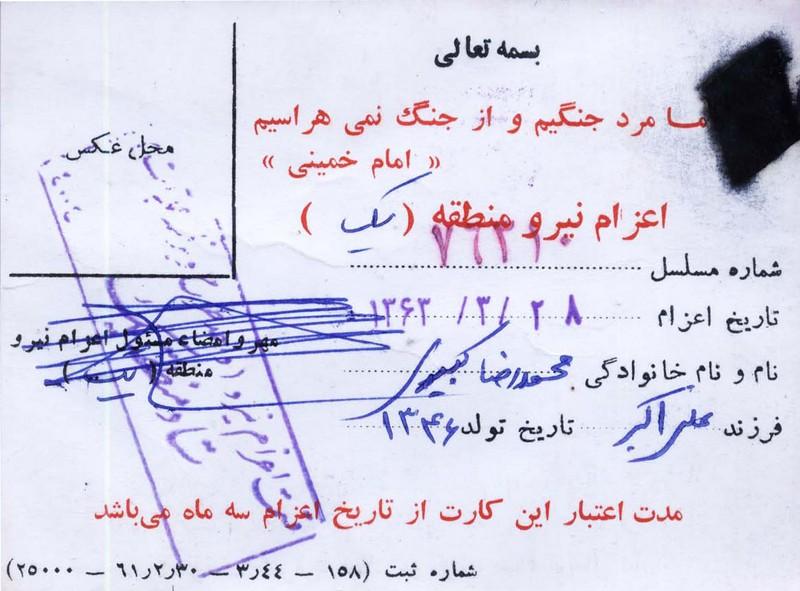 بسمه تعالی
ما مرد جنگیم و از جنگ نمی هراسیم
« امام خمینی »
محل عکس
اعزام نیرو منطقه ( یک )
شماره مسلسل ۷۶۳۱۰
تاریخ اعزام ۲۸ /۳/ ۱۳۶۳
مهر و امضاء مسئول اعزام نیرو
منطقه ( یک )
نام و نام خانوادگی محمدرضا
فرزند علی اکبر تاریخ تولد ۱۳۴۶
مدت اعتبار این کارت از تاریخ اعزام سه ماه می‌باشد
شماره ثبت (۱۵۸ – ۳٫۴۴ – ۶۱٫۲٫۳۰ – ۲۵۰۰۰)